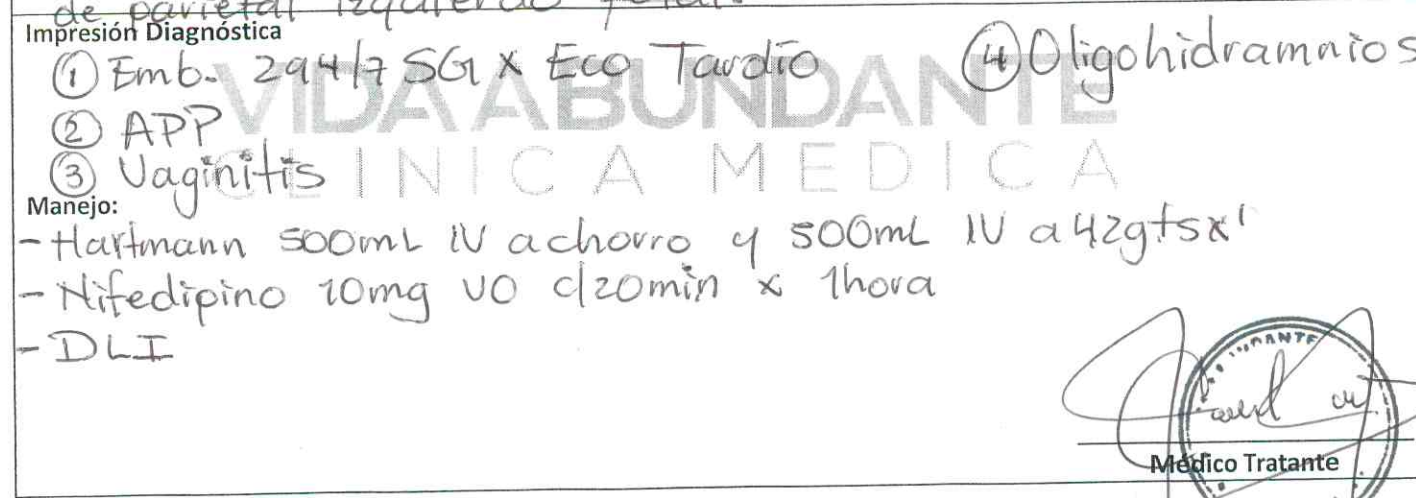 de parietal izquierdo fetal.
Impresión Diagnóstica
① Emb. 29 4/7 SG x Eco Tardío ④ Oligohidramnios
② APP
③ Vaginitis
VIDA ABUNDANTE
CLINICA MEDICA
Manejo:
- Hartmann 500mL IV a chorro y 500mL IV a 42gtsx'
- Nifedipino 10mg VO c/20min x 1hora
- DLI
Médico Tratante